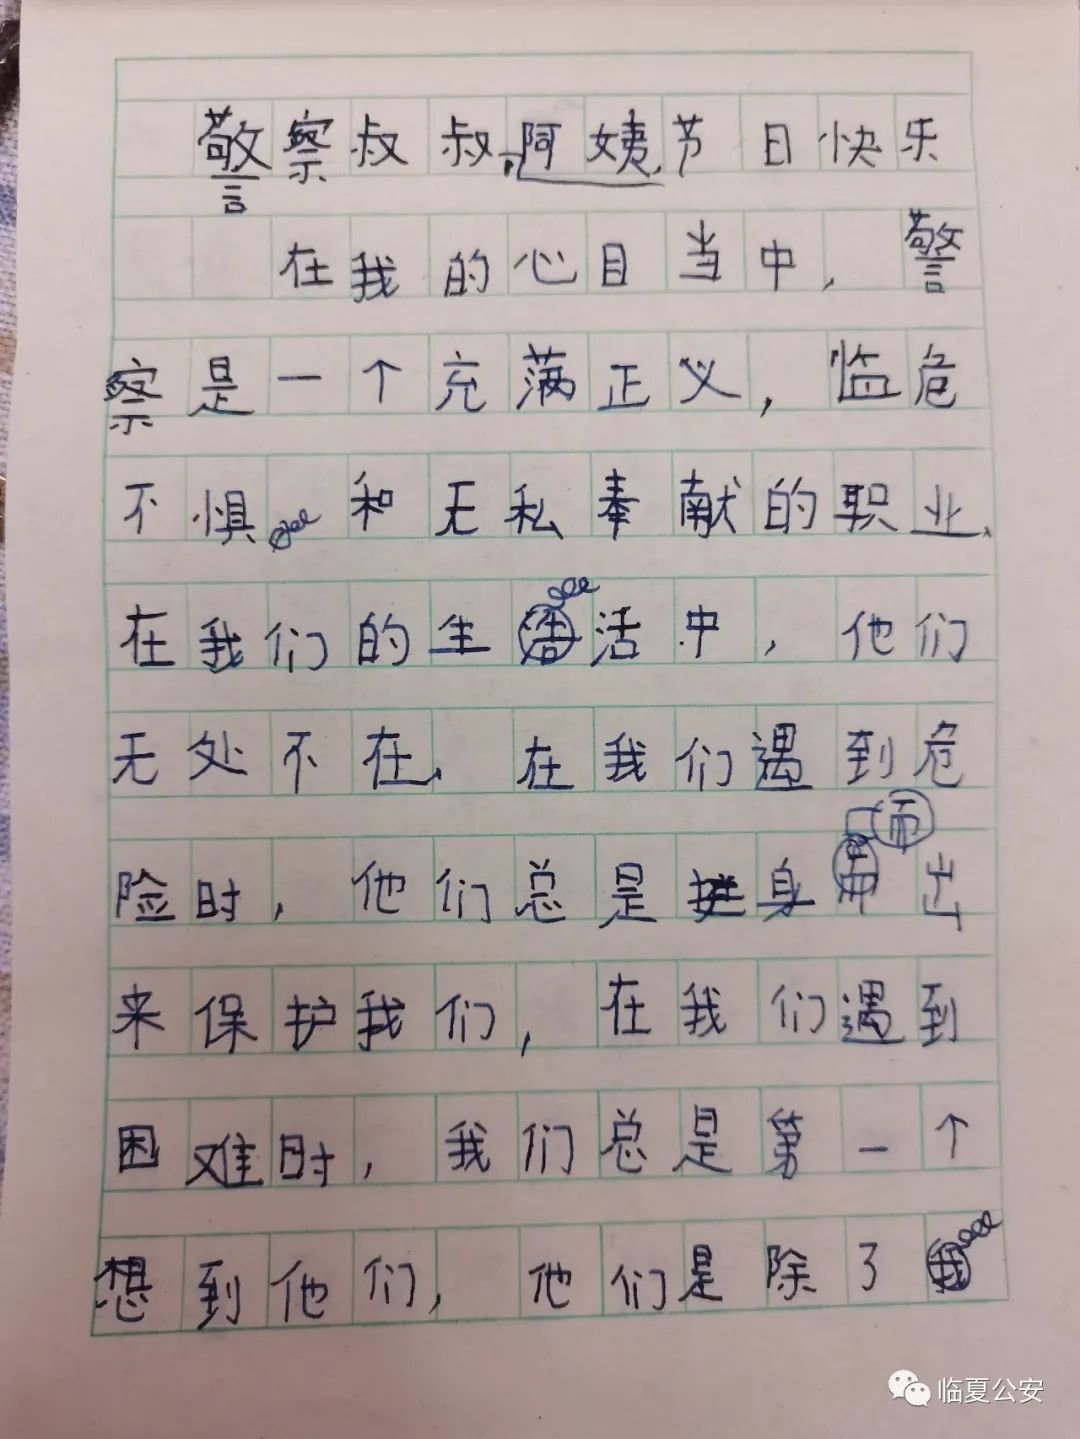 警察叔叔,阿姨,节日快乐
在我的心目当中,警
察是一个充满正义,临危
不惧和无私奉献的职业、
在我们的生活中,他们
无处不在、在我们遇到危
险时,他们总是挺身而出
来保护我们,在我们遇到
困难时,我们总是第一个
想到他们,他们是除了
临夏公安